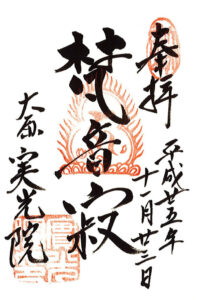 奉拝
平成廿五年
十一月廿三日
梵音寂
大原
実光院